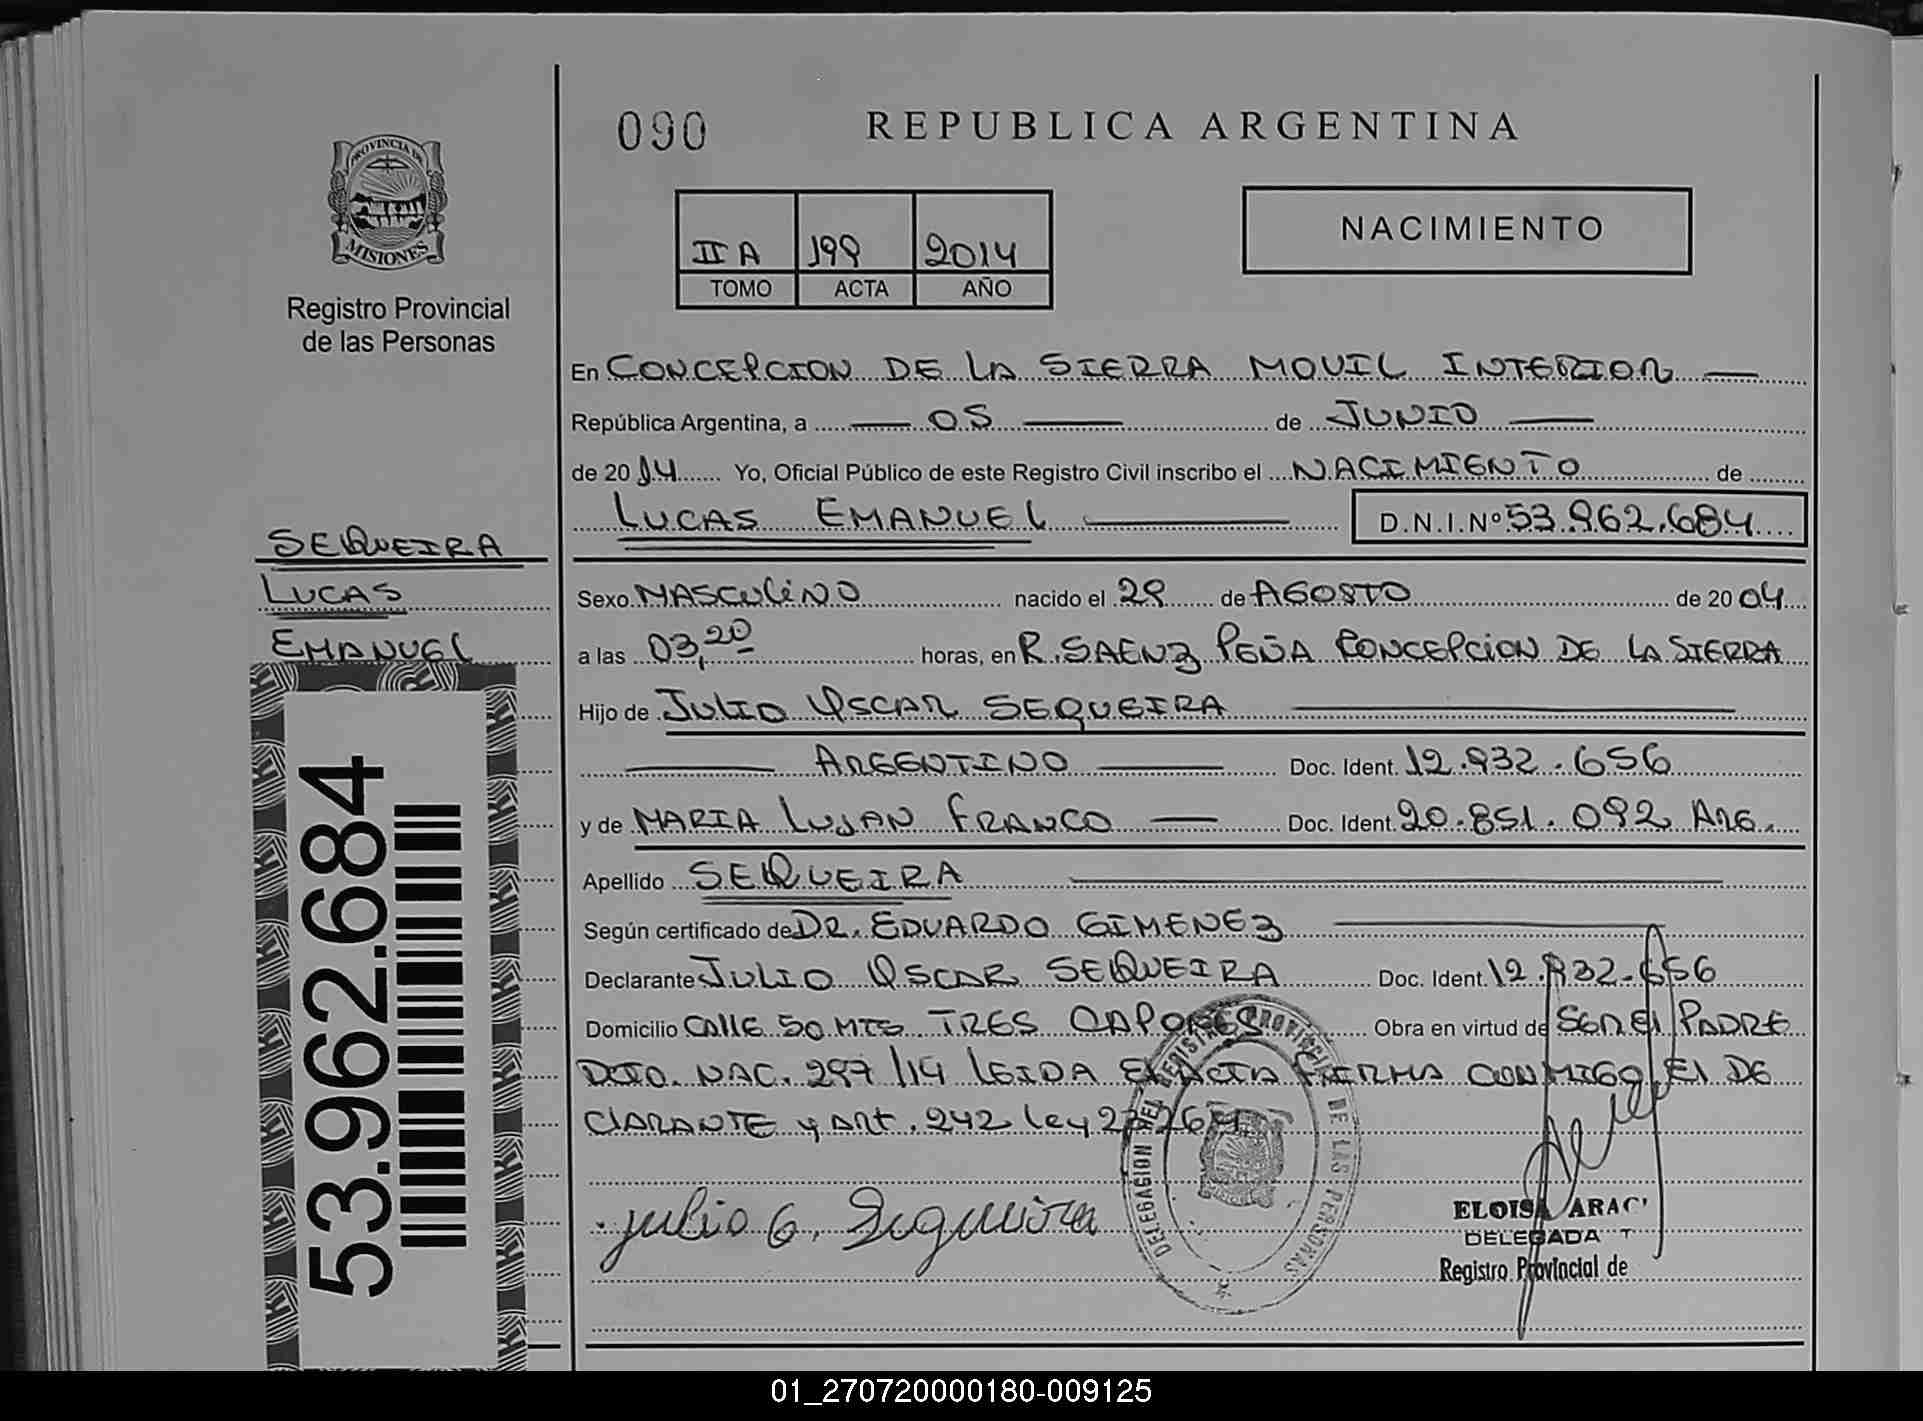 PROVINCIA DE
MISIONES
Registro Provincial
de las Personas
SEQUEIRA
LUCAS
EMANUEL
53.962.684
090
REPUBLICA ARGENTINA
II A 199 2014
TOMO ACTA AÑO
NACIMIENTO
En CONCEPCION DE LA SIERRA MOVIL INTERIOR
República Argentina, a 05 de JUNIO
de 2014 Yo, Oficial Público de este Registro Civil inscribo el NACIMIENTO de
LUCAS EMANUEL D.N.I.Nº 53.962.684
Sexo MASCULiNO nacido el 29 de AGOSTO de 2004
a las 03,20 horas, en R. SAENZ PEÑA CONCEPCION DE LA SIERRA
Hijo de JULIO OSCAR SEQUEIRA
ARGENTINO Doc. Ident. 12.932.656
y de MARIA LUJAN FRANCO Doc. Ident. 20.851.092 ARG.
Apellido SEQUEIRA
Según certificado de DR. EDUARDO GIMENEZ
Declarante JULIO OSCAR SEQUEIRA Doc. Ident. 12.932.656
Domicilio CAlle 50 MTS TRES CAPONES Obra en virtud de SER El PADRE
DCTO. NAC. 297/14 LEIDA El ACTA FIRMA CONMIGO El DE
ClARANTE y ART. 242 ley
DELEGACION DEL REGISTRO PROVINCIAL DE LAS PERSONAS
Julio O. Sequeira
ELOISA ARAC
DELEGADA T
Registro Provincial de
01_270720000180-009125